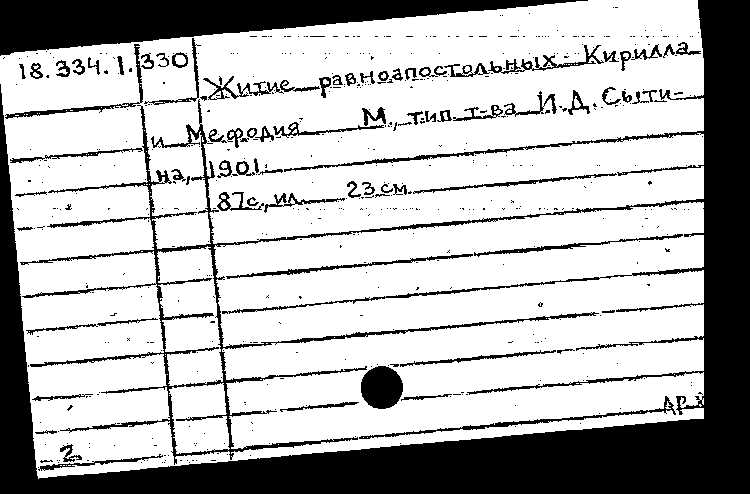 18.334.1.330
Житие равноапостольных Кирилла
и Мефодия М., тип т-ва И.Д. Сыти-
на, 1901.
87с., ил. 23 см
АР
2